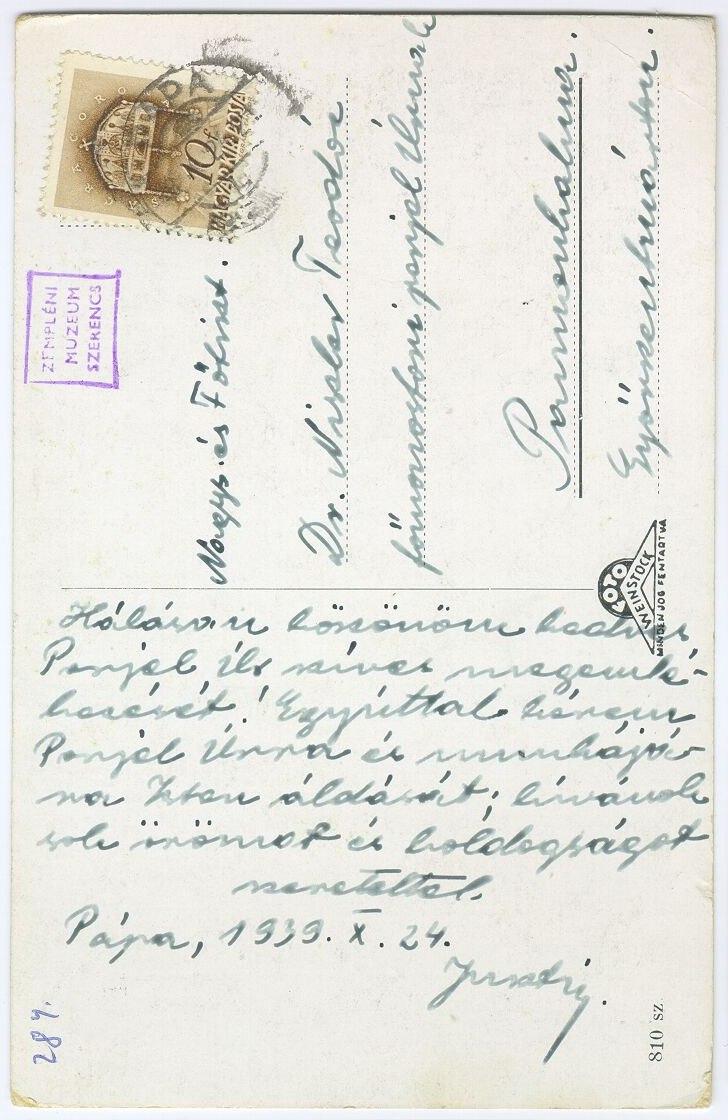 SACRA CORO
10 f
MAGYAR KIR. POSTA
PA
ZEMPLÉNI
MUZEUM
SZERENCS
Nagys. és Főtiszt.
Dr. Niszler Teodóz
főmonostori perjel Úrnak
Pannonhalma.
Győrszentmárton.
FOTO
WEINSTOCK
MINDEN JOG FENTARTVA
Hálásan köszönöm kedves
Perjel Úr szíves megemlé-
kezését! Egyúttal kérem
Perjel Úrra és munkájá-
ra Isten áldását; kívánok
sok örömet és boldogságot
szeretettel
Pápa, 1939. X. 24.
810 sz.
284.